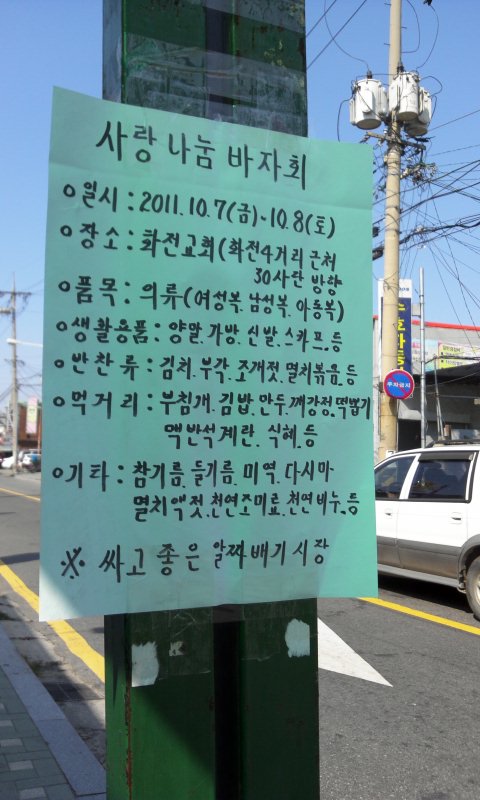 사랑 나눔 바자회
o 일시 : 2011.10.7(금)~10.8(토)
o 장소 : 화전교회 (화전4거리 근처
30사단 방향
o 품목 : 의류(여성복. 남성복. 아동복)
o 생활용품 : 양말. 가방. 신발. 스카프. 등
o 반찬류 : 김치. 부각. 조개젓. 멸치볶음. 등
o 먹거리 : 부침개. 김밥. 만두. 깨강정. 떡뽑기
맥반석계란. 식혜. 등
o 기타 : 참기름. 들기름. 미역. 다시마
멸치액젓. 천연조미료. 천연비누. 등
※ 싸고 좋은 알짜배기시장
주차금지